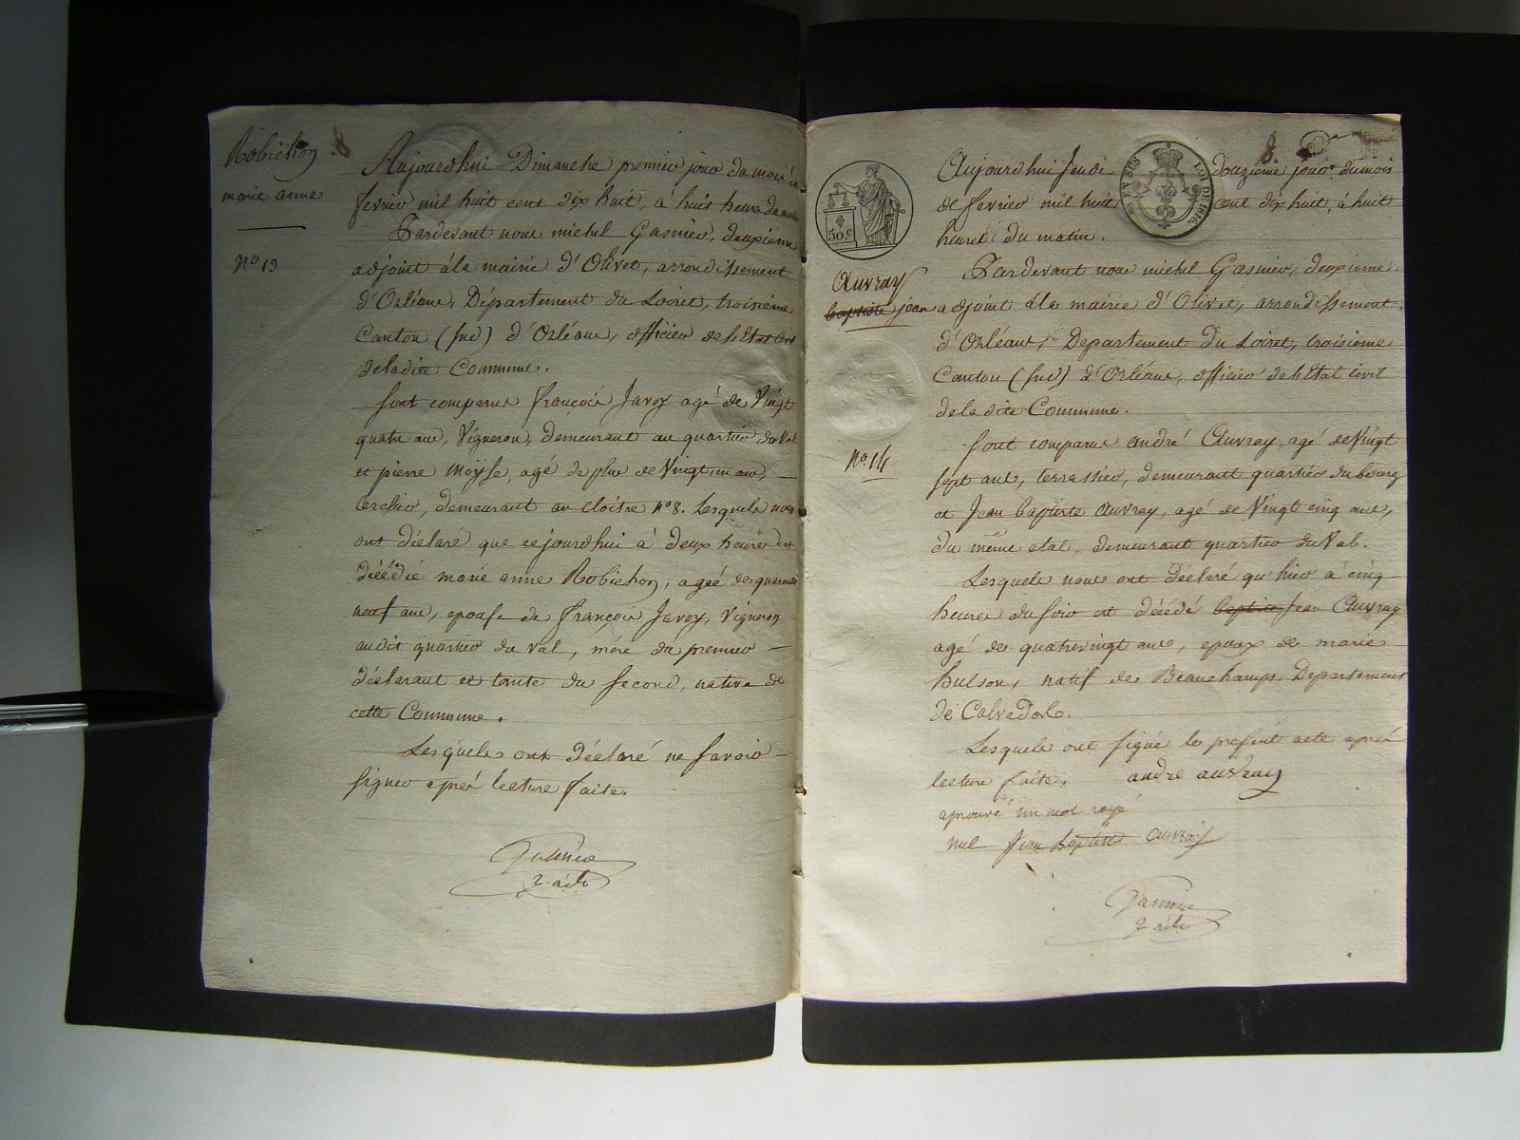 Robichon
marie anne
No 13
Aujourdhui Dimanche premier jour du mois de
fevrier mil huit cent dix huit, a huit heures du matin
Pardevant nous michel Gasnier, deuxieme
adjoint à la mairie d'Olivet, arrondissement
d'Orléans, Département du Loiret, troisieme
Canton (sud) d'Orléans, officier de l'Etat Civil
de la dite Commune.
Sont comparus françois Javoy agé de Vingt
quatre ans, Vigneron, demeurant au quartier du Val
et pierre Moÿse, agé de plus de Vingt un ans,
cerclier, demeurant au cloitre No 8. Lesquels nous
ont déclaré que cejourdhui à deux heures est
décédé marie anne Robichon, ageé de quarante
neuf ans, epouse de françois Javoy, Vigneron
audit quartier du Val, mére du premier
déclarant et tante du second, native de
cette Commune.
Lesquels ont déclaré ne savoir
signer aprés lecture faite.
Gasnier
2 adt
8
50 c
Auvray
baptiste jean
No 14
Aujourdhui Jeudi douzieme jour du mois
de fevrier mil huit cent dix huit, à huit
heures du matin.
Pardevant nous michel Gasnier, deuxieme
adjoint à la mairie d'Olivet, arrondissement
d'Orléans, Departement du Loiret, troisieme
Canton (sud) d'Orléans, officier de l'Etat Civil
de la dite Commune.
Sont comparus andré Auvray, agé de Vingt
sept ans, terrassier, demeurant quartier du bourg
et Jean baptiste Auvray, agé de Vingt cinq ans,
du même etat, demeurant quartier du Val.
Lesquels nous ont déclaré qu'hier à cinq
heures du soir est décédé baptiste jean Auvray
agé de quatrevingt ans, epoux de marie
hulson, natif de Beauchamps Departement
de Calvados.
Lesquels ont signé le présent acte aprés
lecture faite. andre auvray
aprouvé un mot rayé
nul Jean Baptiste Auvray
Gasnier
2 adt